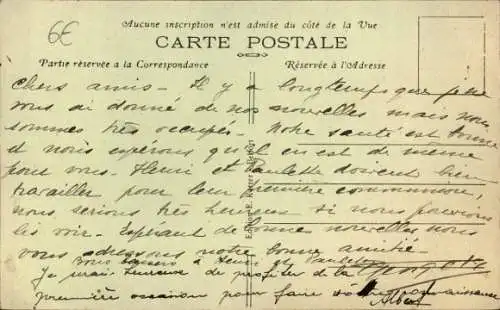 6€
Aucune inscription n'est admise du côté de la Vue
CARTE POSTALE
Partie réservée a la Correspondance
Réservée à l'Adresse
chers amis - Il y a longtemps que je ne
vous ai donné de nos nouvelles mais nous
sommes très occupés - Notre santé est bonne
et nous espérons qu'il en est de même
pour vous - Henri et Paulette doivent bien
travailler pour leur première communion,
nous serions très heureux si nous pouvions
les voir - Espérant de bonne nouvelles nous
vous adressons notre bonne amitié
bons baisers à Henri et Paulette
Je suis heureux de profiter de la
première occasion pour faire connaissance
Albert